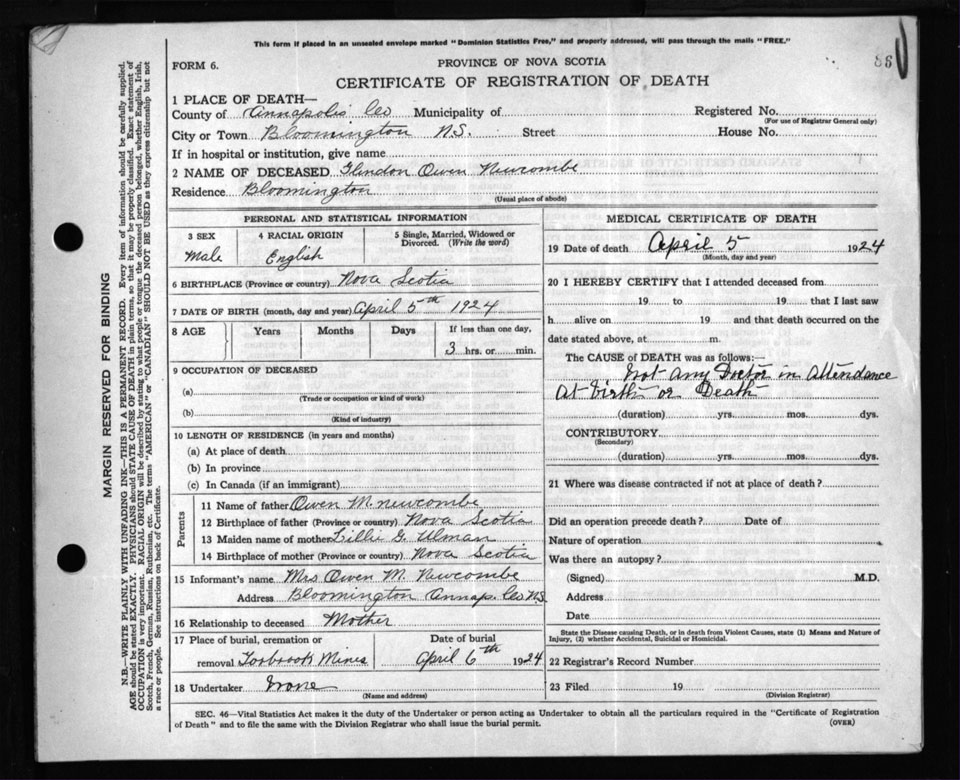 This form if placed in an unsealed envelope marked "Dominion Statistics Free," and properly addressed, will pass through the mails "FREE."
86
FORM 6.
PROVINCE OF NOVA SCOTIA
CERTIFICATE OF REGISTRATION OF DEATH
1 PLACE OF DEATH—
County of Annapolis Co Municipality of Registered No.
(For use of Registrar General only)
City or Town Bloomington N.S. Street House No.
If in hospital or institution, give name
2 NAME OF DECEASED Glendon Owen Newcombe
Residence Bloomington
(Usual place of abode)
PERSONAL AND STATISTICAL INFORMATION
3 SEX 4 RACIAL ORIGIN 5 Single, Married, Widowed or Divorced. (Write the word)
Male English
6 BIRTHPLACE (Province or country) Nova Scotia
7 DATE OF BIRTH (month, day and year) April 5th 1924
8 AGE Years Months Days If less than one day,
3 hrs. or min.
9 OCCUPATION OF DECEASED
(a)
(Trade or occupation or kind of work)
(b)
(Kind of industry)
10 LENGTH OF RESIDENCE (in years and months)
(a) At place of death
(b) In province
(c) In Canada (if an immigrant)
Parents
11 Name of father Owen M. Newcombe
12 Birthplace of father (Province or country) Nova Scotia
13 Maiden name of mother Lillie G. Ulman
14 Birthplace of mother (Province or country) Nova Scotia
15 Informant's name Mrs Owen M. Newcombe
Address Bloomington Annap. Co N.S
16 Relationship to deceased Mother
17 Place of burial, cremation or Date of burial
removal Torbrook Mines April 6th 1924
18 Undertaker None
(Name and address)
MEDICAL CERTIFICATE OF DEATH
19 Date of death April 5 1924
(Month, day and year)
20 I HEREBY CERTIFY that I attended deceased from
19 to 19 that I last saw
h alive on 19 and that death occurred on the
date stated above, at m.
The CAUSE of DEATH was as follows:—
Not any Doctor in Attendance
At birth or Death
(duration) yrs. mos. dys.
CONTRIBUTORY
(Secondary)
(duration) yrs. mos. dys.
21 Where was disease contracted if not at place of death?
Did an operation precede death? Date of
Nature of operation
Was there an autopsy?
(Signed) M.D.
Address
Date
State the Disease causing Death, or in death from Violent Causes, state (1) Means and Nature of
Injury, (2) whether Accidental, Suicidal or Homicidal.
22 Registrar's Record Number
23 Filed 19
(Division Registrar)
SEC. 46—Vital Statistics Act makes it the duty of the Undertaker or person acting as Undertaker to obtain all the particulars required in the "Certificate of Registration
of Death" and to file the same with the Division Registrar who shall issue the burial permit. (OVER)
MARGIN RESERVED FOR BINDING
N.B.—WRITE PLAINLY WITH UNFADING INK—THIS IS A PERMANENT RECORD. Every item of information should be carefully supplied.
AGE should be stated EXACTLY. PHYSICIANS should STATE CAUSE OF DEATH in plain terms, so that it may be properly classified. Exact statement of
OCCUPATION is very important. RACIAL ORIGIN will be described by stating to what people or tongue the deceased person belonged, whether English, Irish,
Scotch, French, German, Russian, Ruthenian, etc. The terms "AMERICAN" or "CANADIAN" SHOULD NOT BE USED as they express citizenship but not
a race or people. See instructions on back of Certificate.